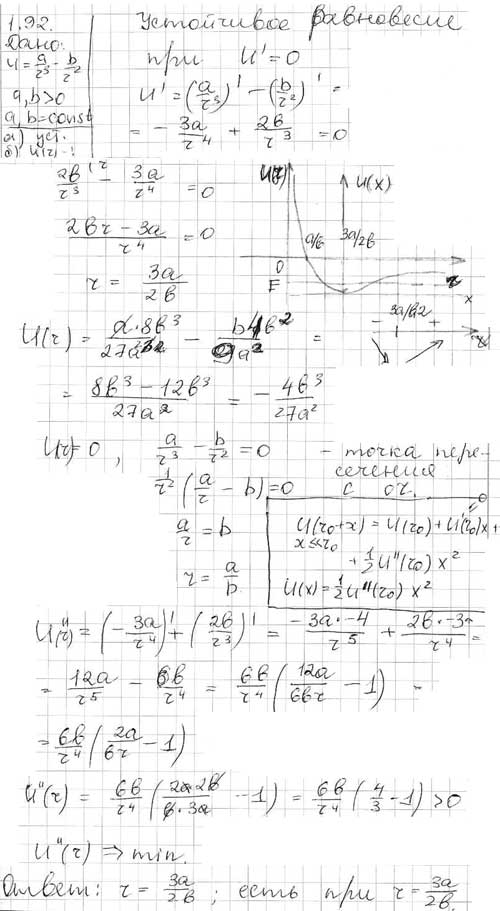 1.92.
Дано:
U = a/r³ - b/r²
a, b > 0
a, b = const
а) уст.
б) U(r) - ?
Устойчивое равновесие
при U' = 0
U' = (a/r³)' - (b/r²)' =
= - 3a/r⁴ + 2b/r³ = 0
2b/r³ - 3a/r⁴ = 0
(2br - 3a)/r⁴ = 0
r = 3a/2b
U(r)
U(x)
a/b
3a/2b
0
E
r
x
- 3a/2b +
x
U(r) = a·8b³/27a³ - b4b²/9a² =
= (8b³ - 12b³)/27a² = - 4b³/27a²
U(r) = 0, a/r³ - b/r² = 0 - точка пере-
сечения
1/r² (a/r - b) = 0 с or.
a/r = b
r = a/b
U(r₀+x) = U(r₀) + U'(r₀)x +
x ≪ r₀
+ 1/2 U''(r₀) x²
U(x) = 1/2 U''(r₀) x²
U''(r) = (- 3a/r⁴)' + (2b/r³)' = -3a·-4/r⁵ + 2b·-3/r⁴ =
= 12a/r⁵ - 6b/r⁴ = 6b/r⁴ (12a/6br - 1) =
= 6b/r⁴ (2a/br - 1)
U''(r) = 6b/r⁴ (2a·2b/b·3a - 1) = 6b/r⁴ (4/3 - 1) > 0
U''(r) ⇒ min.
Ответ: r = 3a/2b; есть при r = 3a/2b.